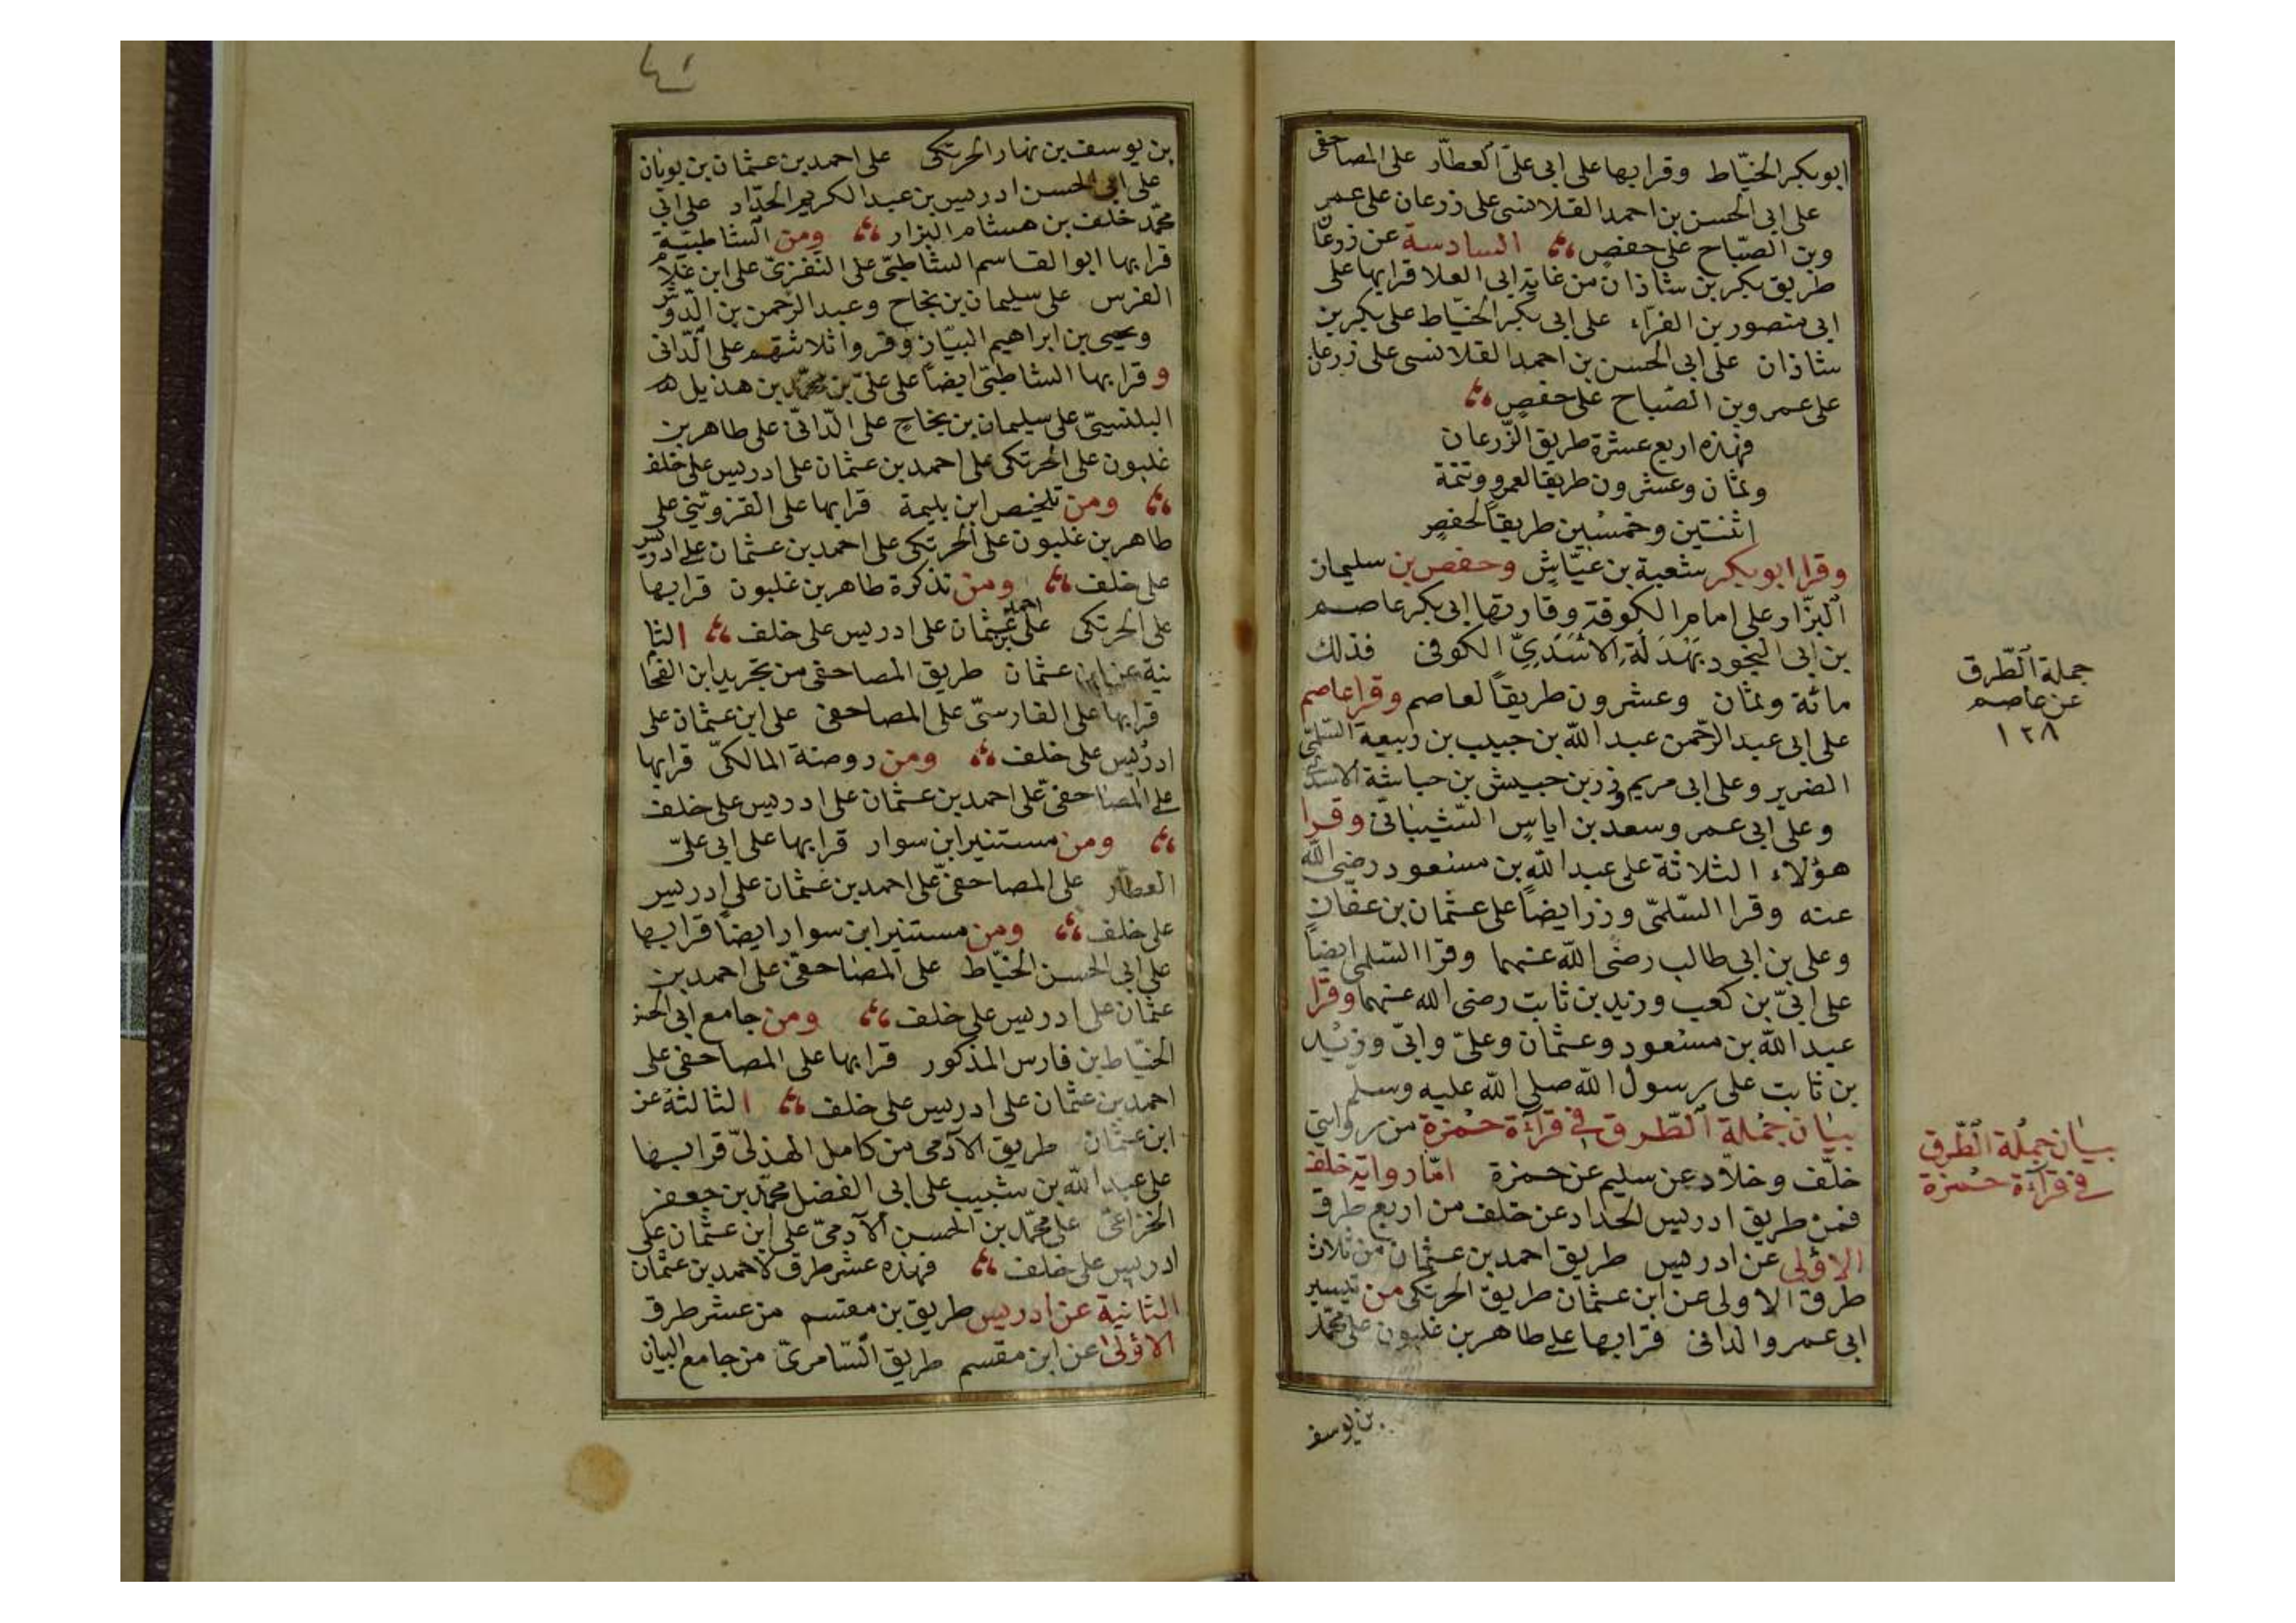 ابو بكر الخيّاط وقرا بها على ابى علىّ العطّار على المصاحفى
على ابى الحسن بن احمد القلانسى على زرعان على عمر
وبن الصّباح على حفصٍ السادسة عن زرعان
طريق بكر بن شاذان من غاية ابى العلا قرا بها على
ابى منصور بن الفرّاء على ابى بكر الخيّاط على بكر بن
شاذان على ابى الحسن بن احمد القلانسى على زرعان
على عمر وبن الصّباح على حفصٍ
فهذه اربع عشرة طريق الزّرعان
وثمان وعشرون طريقا لعمرو وتتمة
اثنتين وخمسين طريقاً لحفصٍ
وقرا ابو بكر شعبة بن عيّاشٍ وحفص بن سليمان
البزّار على امام الكوفة وقارئها ابى بكر عاصم
بن ابى النجود بَهْدَلَة الاسَدِىِّ الكوفى فذلك
مائة وثمان وعشرون طريقاً لعاصم وقرا عاصم
على ابى عبد الرّحمن عبد اللّه بن حبيب بن ربيعة السّلمىّ
الضرير وعلى ابى مريم زر بن حبيش بن حباشة الاسدى
وعلى ابى عمر وسعد بن اياسٍ الشّيبانى وقرا
هؤلاء الثلاثة على عبد اللّه بن مسعود رضى اللّه
عنه وقرا السّلمىّ وزر ايضاً على عثمان بن عفّان
وعلى بن ابى طالب رضى اللّه عنهما وقرا السّلمى ايضاً
على ابىّ بن كعب وزيد بن ثابت رضى اللّه عنهما وقرا
عبد اللّه بن مسعود وعثمان وعلىّ وابىّ وزيد
بن ثابت على رسول اللّه صلى اللّه عليه وسلّم
بيان جملة الطّرق فى قراءة حمزة من روايتى
خلف وخلّاد عن سليم عن حمزة امّا رواية خلف
فمن طريق ادريس الحداد عن خلف من اربع طرق
الاولى عن ادريس طريق احمد بن عثمان من ثلاث
طرق الاولى عن ابن عثمان طريق الحرتكى من تيسير
ابى عمرو الدانى قرا بها على طاهر بن غلبون على محمّد
بن يوسف
جملة الطّرق
عن عاصم
١٢٨
بيان جملة الطّرق
فى قراءة حمزة
بن يوسف بن نهار الحرتكى على احمد بن عثمان بن بويان
على ابى الحسن ادريس بن عبد الكريم الحدّاد على ابى
محمّد خلف بن هشام البزار ومن الشاطبيّة
قرا بها ابو القاسم الشاطبىّ على النفزىّ على ابن غلام
الفرس على سليمان بن نجاح وعبد الرّحمن بن الدّوش
ويحيى بن ابراهيم البيّاز وقروا ثلاثتهم على الدّانى
وقرا بها الشاطبىّ ايضاً على علىّ بن محمّد بن هذيل
البلنسيّى على سليمان بن نجاحٍ على الدّانىّ على طاهر بن
غلبون على الحرتكى على احمد بن عثمان على ادريس على خلف
ومن تلخيص ابن بليمة قرا بها على القزوينى على
طاهر بن غلبون على الحرتكى على احمد بن عثمان على ادريس
على خلف ومن تذكرة طاهر بن غلبون قرا بها
على الحرتكى على احمد بن عثمان على ادريس على خلف الثا
نية عن ابن عثمان طريق المصاحفى من تجريد ابن الفحا
قرا بها على الفارسىّ على المصاحفى على ابن عثمان على
ادريس على خلف ومن روضة المالكىّ قرا بها
على المصاحفىّ على احمد بن عثمان على ادريس على خلف
ومن مستنير ابن سوار قرا بها على ابى علىّ
العطّار على المصاحفىّ على احمد بن عثمان على ادريس
على خلف ومن مستنير ابن سوار ايضاً قرا بها
على ابى الحسن الخيّاط على المصاحفىّ على احمد بن
عثمان على ادريس على خلف ومن جامع ابى الحسن
الخيّاط بن فارس المذكور قرا بها على المصاحفى على
احمد بن عثمان على ادريس على خلف الثالثة عن
ابن عثمان طريق الآدمى من كامل الهذلىّ قرا بها
على عبد اللّه بن شبيب على ابى الفضل محمّد بن جعفر
الخزاعىّ على محمّد بن الحسن الآدمىّ على ابن عثمان على
ادريس على خلف فهذه عشر طرق لاحمد بن عثمان
الثانية عن ادريس طريق بن مقسم من عشر طرق
الاولى عن ابن مقسم طريق السّامرىّ من جامع البيان